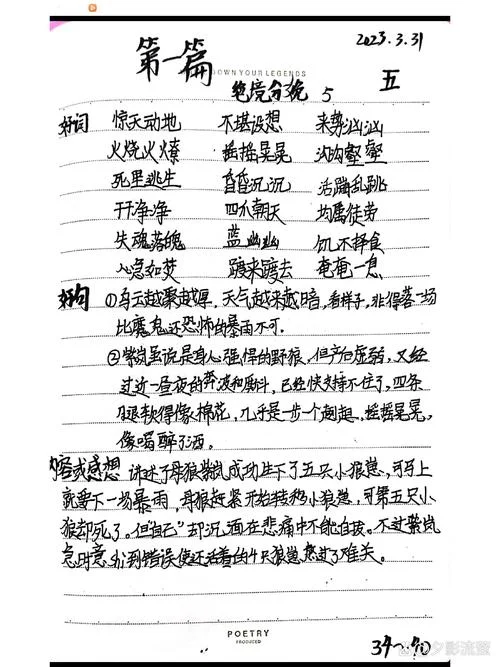 2023.3.31
第一篇
DOWN YOUR LEGENDS
五
绝境分娩 5
好词 惊天动地 不堪设想 来势汹汹
火烧火燎 摇摇晃晃 沟沟壑壑
死里逃生 昏昏沉沉 活蹦乱跳
干净净 四爪朝天 均属徒劳
失魂落魄 蓝幽幽 饥不择食
心急如焚 踱来踱去 奄奄一息
好句 ①乌云越聚越厚,天气越来越暗,看样子,非得落一场
比魔鬼还恐怖的暴雨不可.
②紫岚虽说是身心强悍的野狼,但产后虚弱,又经
过近一昼夜的奔波和厮斗,已经快支持不住了,四条
腿软得像棉花,几乎是一步一个趔趄,摇摇晃晃,
像喝醉了酒。
内容或感想 讲述了母狼紫岚成功生下了五只小狼崽,可马上
就要下一场暴雨,母狼赶紧开始转移小狼崽,可第五只小
狼却死了。但自己却沉湎在悲痛中不能自拔。不过紫岚
急时意识到错误使还活着的4只狼崽熬过了难关。
POETRY
PRODUCED
34~40
夕影流萤